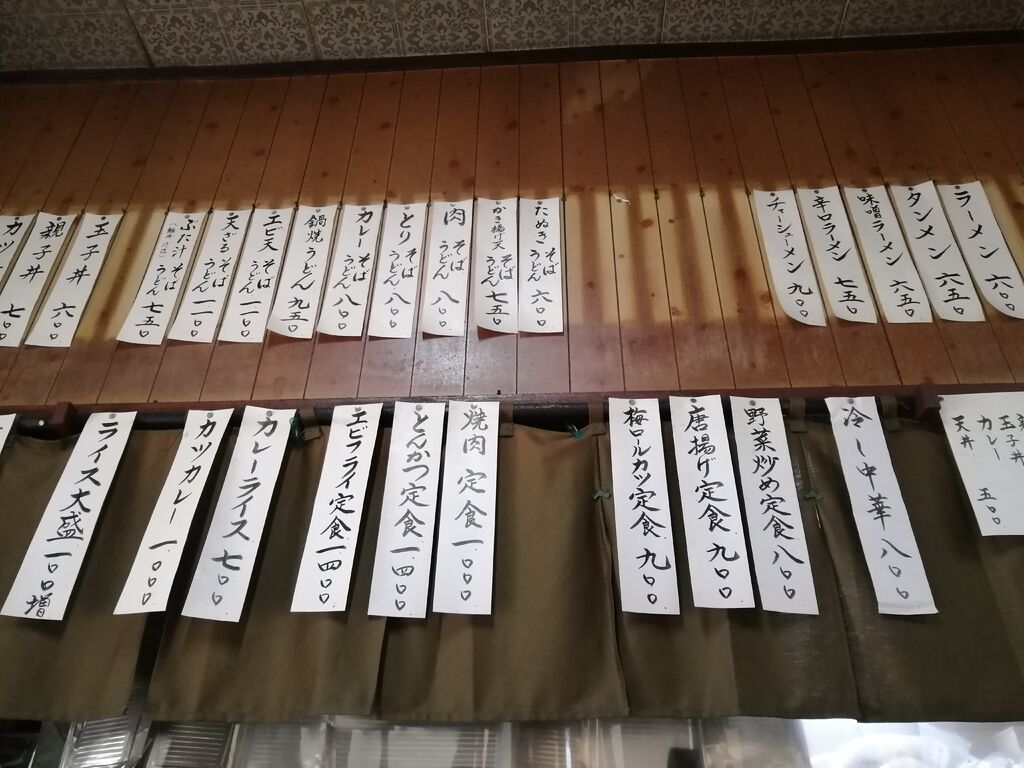 ラーメン 六〇〇
タンメン 六五〇
味噌ラーメン 六五〇
辛口ラーメン 七五〇
チャーシューメン 九〇〇
たぬき そば うどん 六〇〇
かき揚げ天 そば うどん 七五〇
肉 そば うどん 八〇〇
とり そば うどん 八〇〇
カレー そば うどん 八〇〇
鍋焼うどん 九五〇
エビ天 そば うどん 一一〇〇
天ざる そば うどん 一一〇〇
ぶた汁 そば うどん 七五〇
玉子丼 六〇〇
親子丼 七〇〇
カツ
玉子丼
カレー
天丼 五〇〇
冷し中華 八〇〇
野菜炒め定食 八〇〇
唐揚げ定食 九〇〇
梅ロールカツ定食 九〇〇
焼肉定食 一〇〇〇
とんかつ定食 一四〇〇
エビフライ定食 一四〇〇
カレーライス 七〇〇
カツカレー 一〇〇〇
ライス大盛 一〇〇増